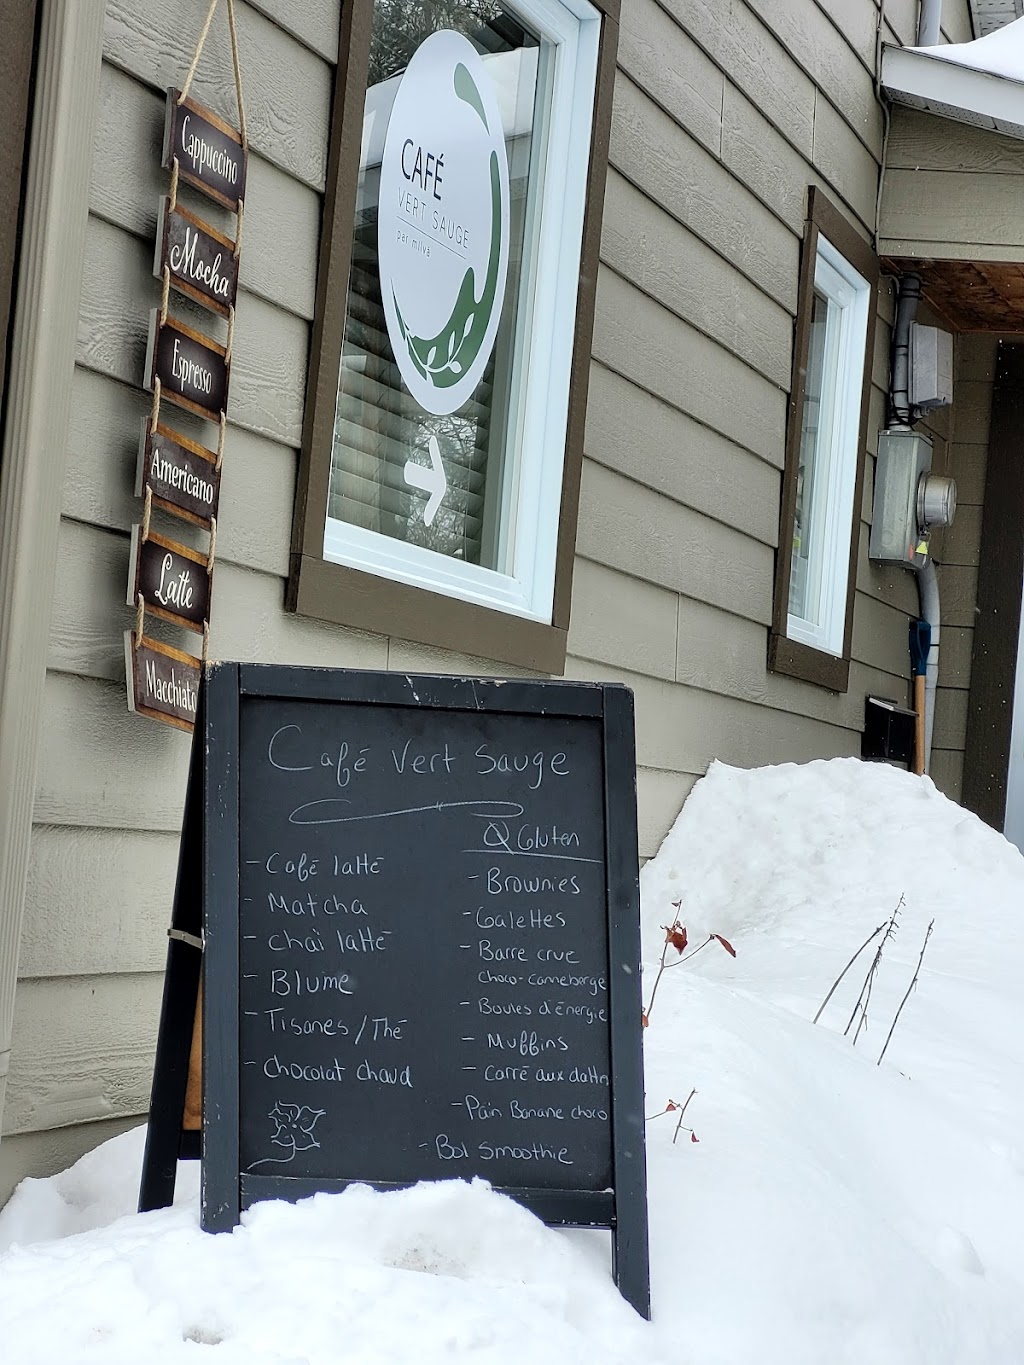 Cappuccino
Mocha
Espresso
Americano
Latte
Macchiato
CAFÉ
VERT SAUGE
par milva
Café Vert Sauge
- Café latté
- Matcha
- chaï latté
- Blume
- Tisanes/Thé
- Chocolat chaud
Gluten
- Brownies
- Galettes
- Barre crue
choco-canneberge
- Boules d'énergie
- Muffins
- Carré aux dattes
- Pain Banane choco
- Bol Smoothie